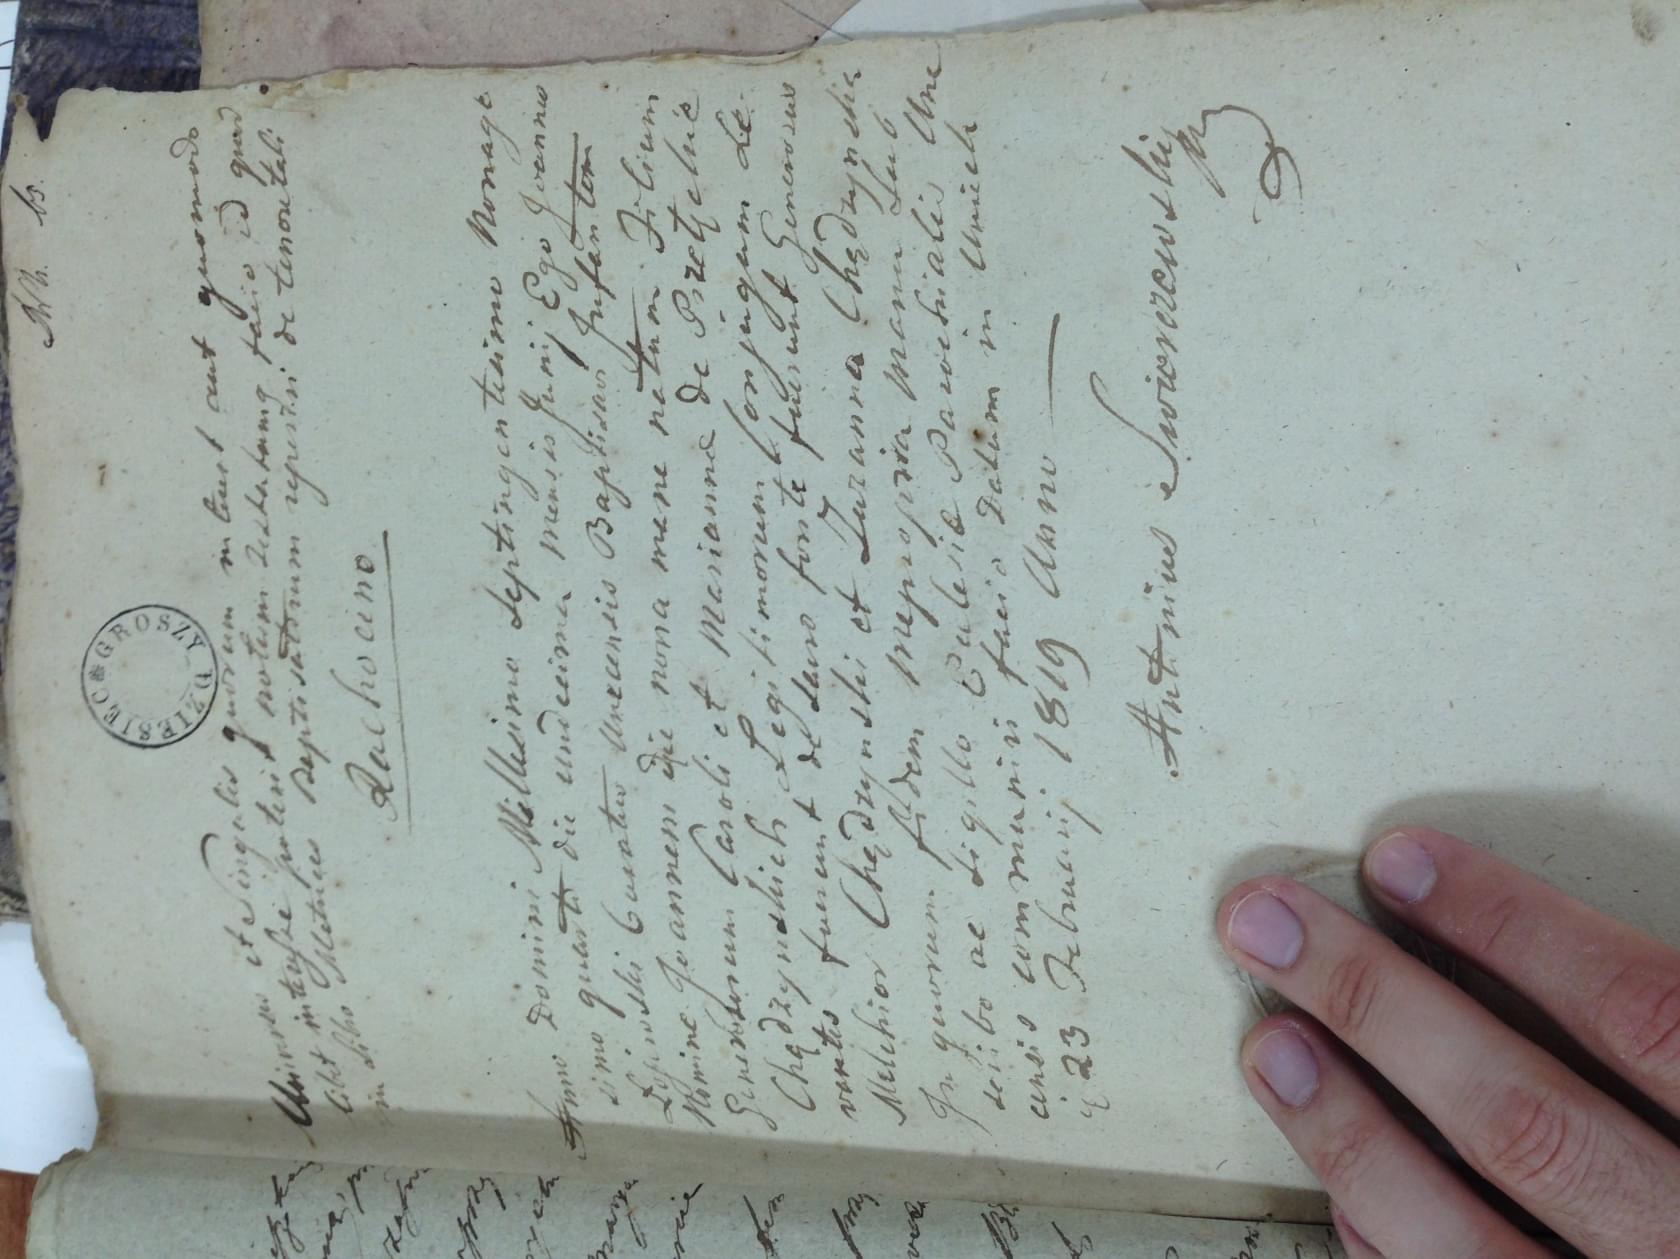 No. 63.
GROSZY DZIESIĘĆ
Universis et Singulis quorum inteust aut quomodo
libet interesse poterit notum testatumq facio id quod
in Libro Metrices Baptisatorum reperi de tenore tali
Rachocino
Anno Domini Millesimo Septingentesimo Nonage
simo quarto die undecima mensis Junij Ego Joannes
Curatus Unecensis Baptisavi Infantem
Nomine Joannem die nona mene natum Filium
Generosorum Caroli et Marianne de
Chądzynskich Legitimorum Conjugum Le
vantes fuerunt de Sacro fonte fuerunt Generosus
Melchior Chądzynski et Zuzanna Chądzynska
In quorum fidem me propria manu Sub
scribo ac Sigillo Eclesie Parochialis Une
censis communiri facio Datum in Uniech
23 Februarij 1819 Anno
Antonius Swiercewski